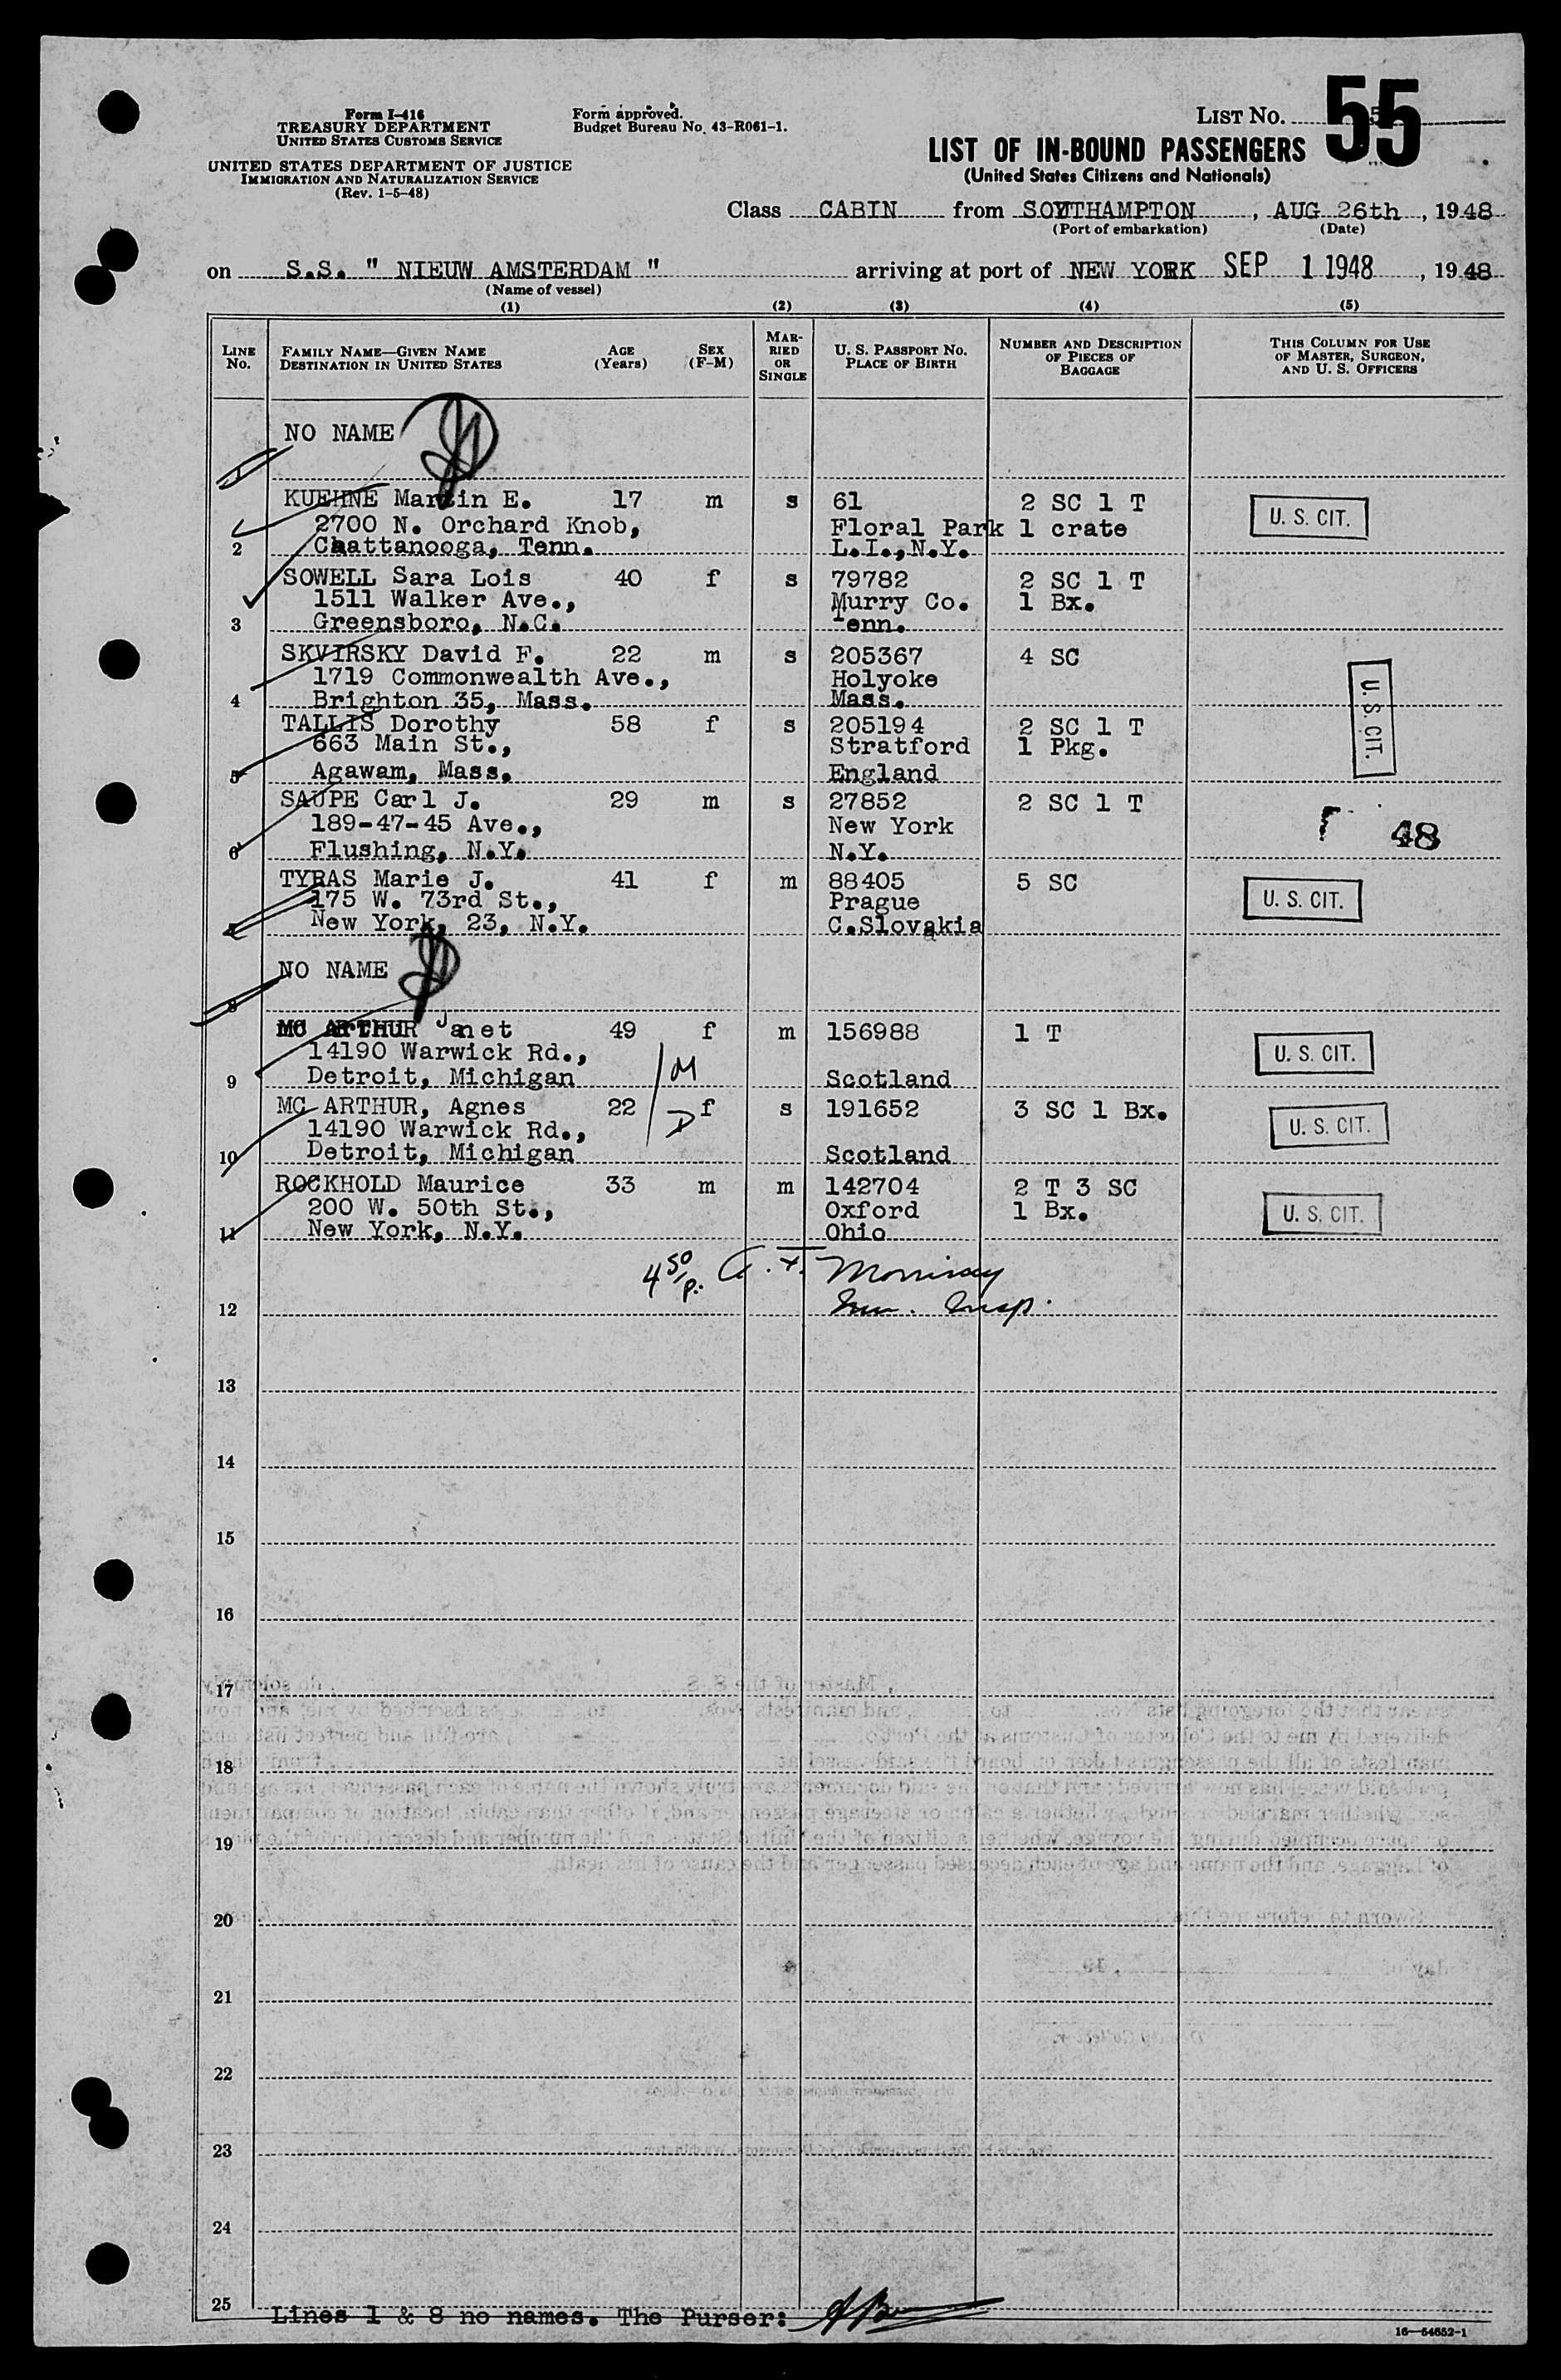 Form I-416
TREASURY DEPARTMENT
UNITED STATES CUSTOMS SERVICE
UNITED STATES DEPARTMENT OF JUSTICE
IMMIGRATION AND NATURALIZATION SERVICE
(Rev. 1-5-48)
Form approved.
Budget Bureau No. 43-R061-1.
LIST NO. 55
LIST OF IN-BOUND PASSENGERS
(United States Citizens and Nationals)
Class CABIN from SOUTHAMPTON, AUG 26th, 1948
(Port of embarkation) (Date)
on S.S. " NIEUW AMSTERDAM " arriving at port of NEW YORK SEP 1 1948, 1948
(Name of vessel)
(1) (2) (3) (4) (5)
LINE No. FAMILY NAME—GIVEN NAME DESTINATION IN UNITED STATES AGE (Years) SEX (F-M) MARRIED OR SINGLE U. S. PASSPORT NO. PLACE OF BIRTH NUMBER AND DESCRIPTION OF PIECES OF BAGGAGE THIS COLUMN FOR USE OF MASTER, SURGEON, AND U. S. OFFICERS
NO NAME
1
KUEHNE Martin E. 17 m s 61 2 SC 1 T U. S. CIT.
2700 N. Orchard Knob, Floral Park 1 crate
2 Chattanooga, Tenn. L.I.,N.Y.
SOWELL Sara Lois 40 f s 79782 2 SC 1 T
1511 Walker Ave., Murry Co. 1 Bx.
3 Greensboro, N.C. Tenn.
SKVIRSKY David F. 22 m s 205367 4 SC
1719 Commonwealth Ave., Holyoke U. S. CIT.
4 Brighton 35, Mass. Mass.
TALLIS Dorothy 58 f s 205194 2 SC 1 T
663 Main St., Stratford 1 Pkg.
5 Agawam, Mass. England
SAUPE Carl J. 29 m s 27852 2 SC 1 T
189-47-45 Ave., New York 48
6 Flushing, N.Y. N.Y.
TYRAS Marie J. 41 f m 88405 5 SC U. S. CIT.
175 W. 73rd St., Prague
7 New York, 23, N.Y. C.Slovakia
NO NAME
8
MC ARTHUR Janet 49 f m 156988 1 T U. S. CIT.
14190 Warwick Rd., M
9 Detroit, Michigan Scotland
MC ARTHUR, Agnes 22 D f s 191652 3 SC 1 Bx. U. S. CIT.
14190 Warwick Rd.,
10 Detroit, Michigan Scotland
ROCKHOLD Maurice 33 m m 142704 2 T 3 SC U. S. CIT.
200 W. 50th St., Oxford 1 Bx.
11 New York, N.Y. Ohio
4 50/p. Morrissey
12 Imm. Insp.
13
14
15
16
17
18
19
20
21
22
23
24
25
Lines 1 & 8 no names. The Purser:
16—54652-1